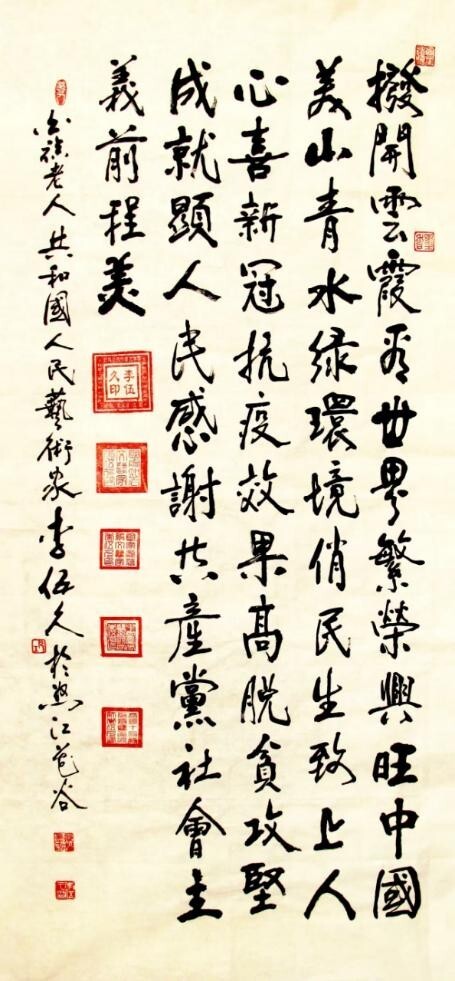 撥開雲霞看世界繁榮興旺中國
美山青水绿環境俏民生致上人
心喜新冠抗疫效果髙脱貧攻堅
成就顯人民感謝共產黨社會主
義前程美
老人共和國人民藝術家李伍久於
李伍
久印